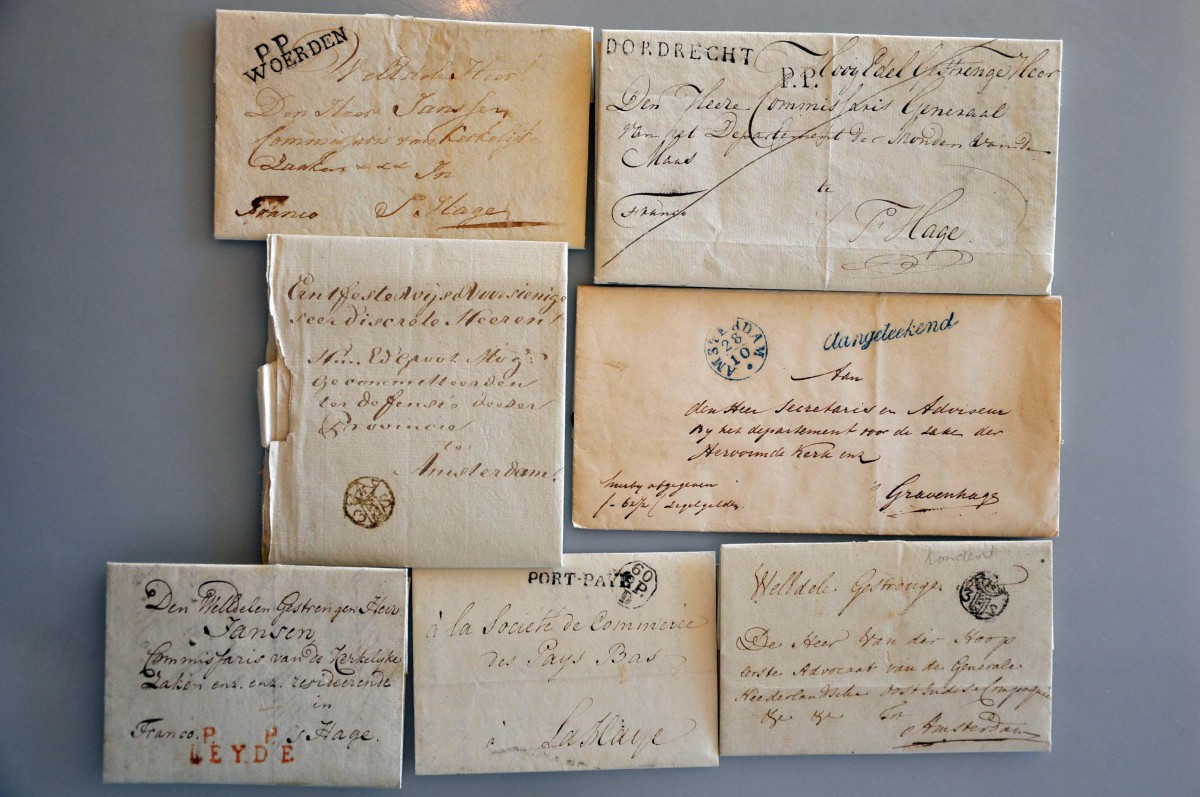 P.P.
WOERDEN
Weledele Heer
Den Heer Janssen
Commissaris van Kerkelijke
Zaaken &&& In
Franco S Hage
DORDRECHT
P.P.
Hoog Edel Gestrenge Heer
Den Heere Commissaris Generaal
van het Departement der Monden van de
Maas
te
Franco
S' Hage.
Erntfeste wijse Voorsienige
seer discrete Heeren
Hun Ed Groot Mog:
Gecommitteerden
ter defensie deeser
Provincie
tot
Amsterdam
AMSTERDAM
28
10
Aangeteekend
Aan
den Heer Secretaris en Adviseur
By het departement voor de zake der
Hervormde Kerk enz
hierby afgegeven
Zegelgelden
's Gravenhage
Den Weledelen Gestrengen Heer
Jansen
Commissaris van de Kerkelyke
Zaken enz. enz. resideerende
in
Franco. P. P. 's Hage.
LEYDE
PORT-PAYÉ
60
P.
à la Societé de Commerce
des Pays Bas
à La Haye
Londen
Weledele Gestrenge
De Heer Van der Hoop
eerste Advocaat van de Generale
Nederlandsche Oost Indise Compagnie
&c &c Tot
Amsterdam